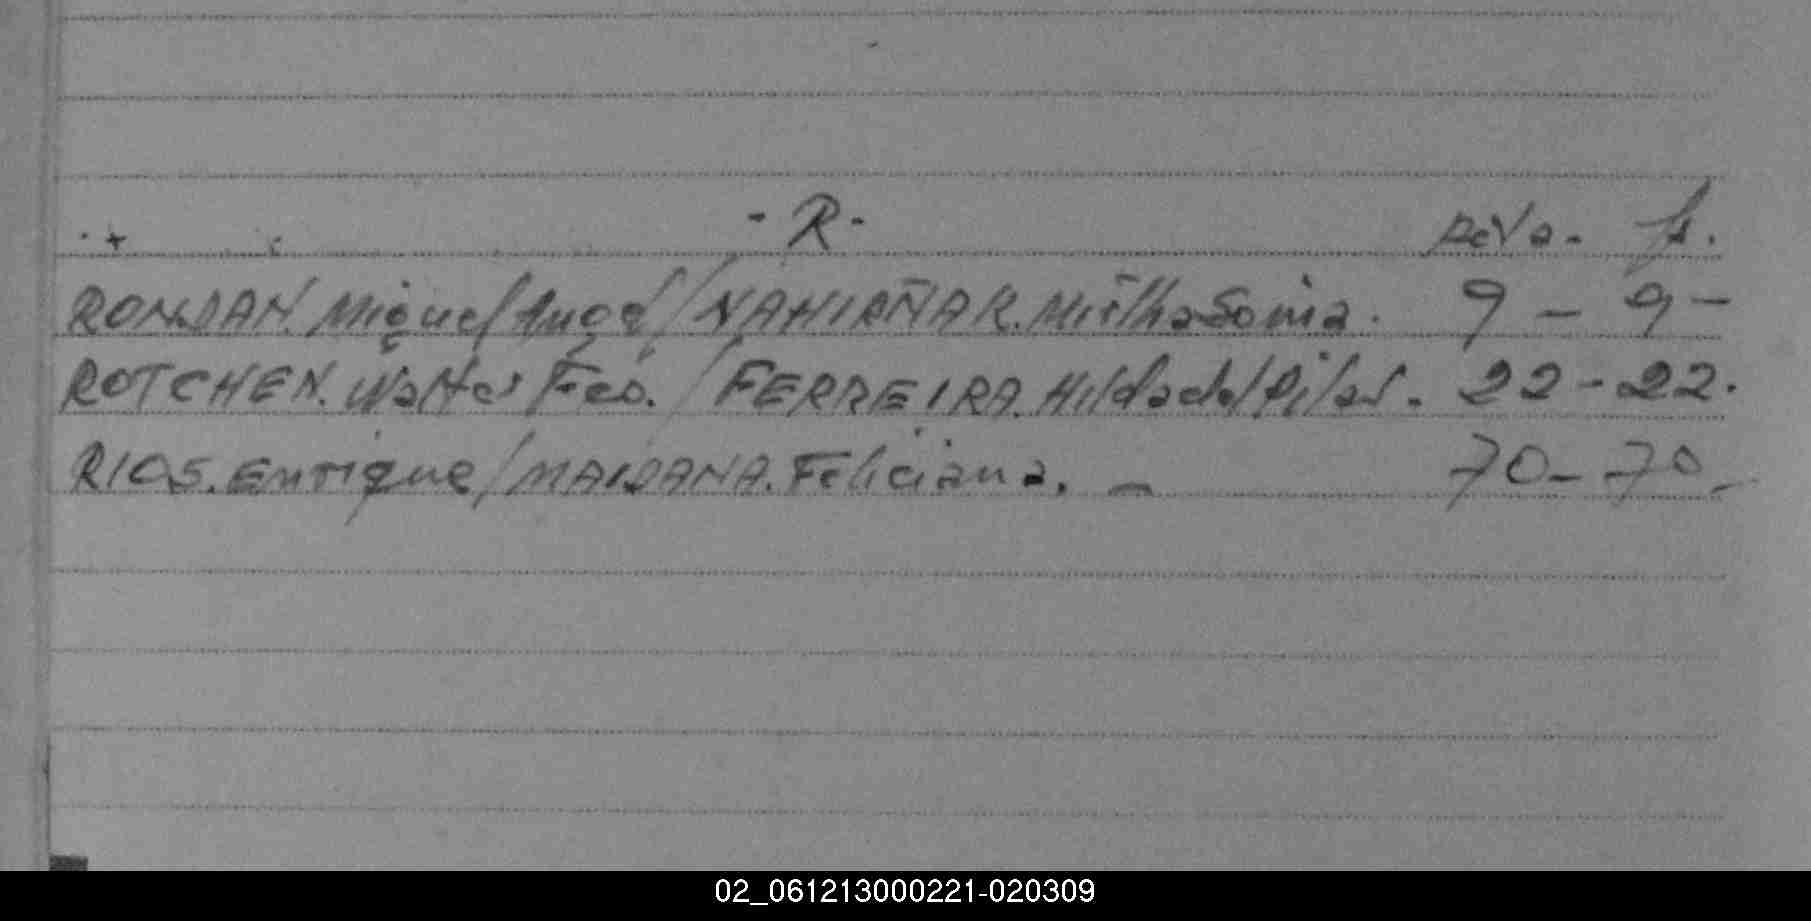 - R - Acta. fs.
RONDAN. Miguel Angel / NAHIRÑAK. Mirtha Sonia. 9 - 9 -
ROTCHEN. Walter Fco. / FERREIRA. Hilda del Pilar. 22 - 22.
RIOS. Enrique / MAIDANA. Feliciana. - 70 - 70 -
02_061213000221-020309